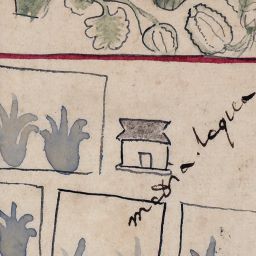 media legua